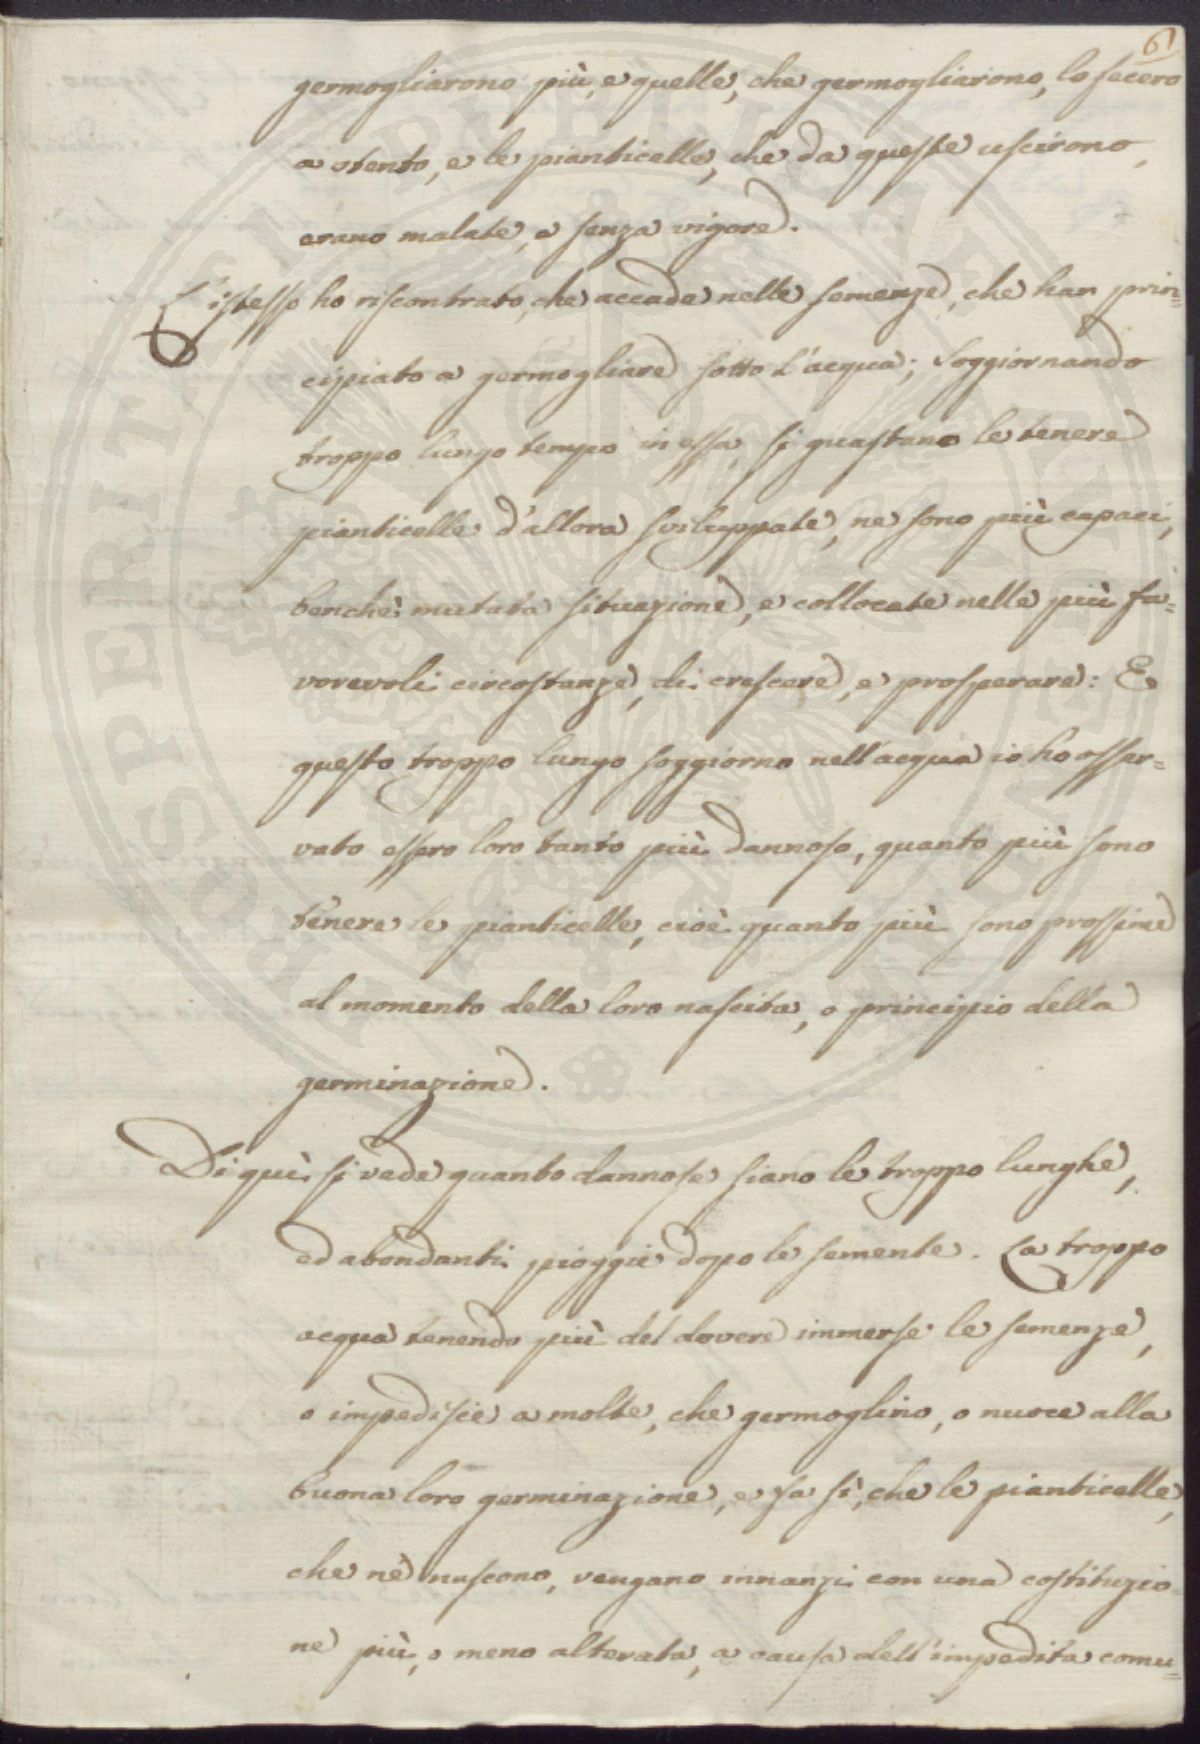 61
germogliarono più, e quelle, che germogliarono, lo fecero
a stento, e le pianticelle, che da queste uscirono,
erano malate, e senza vigore.
L'istesso ho riscontrato, che accade nelle semenze, che han prin=
cipiato a germogliare sotto l'acqua; soggiornando
troppo lungo tempo in essa, si guastano le tenere
pianticelle d'allora sviluppate, ne sono più capaci,
benchè mutata situazione, e collocate nelle più fa=
vorevoli circostanze, di crescere, e prosperare: E
questo troppo lungo soggiorno nell'acqua io ho osser=
vato essere loro tanto più dannoso, quanto più sono
tenere le pianticelle, cioè quanto più sono prossime
al momento della loro nascita, o principio della
germinazione.
Di quì si vede quanto dannose siano le troppo lunghe,
ed abondanti pioggie dopo le semente. La troppo
acqua tenendo più del dovere immerse le semenze,
o impedisce a molte, che germoglino, o nuoce alla
buona loro germinazione, e fa sì, che le pianticelle,
che nè nascono, vengano innanzi con una costituzio
ne più, o meno alterata, a causa dell'impedita comu=
PROSPERITATI PUBLICAE AUGENDAE